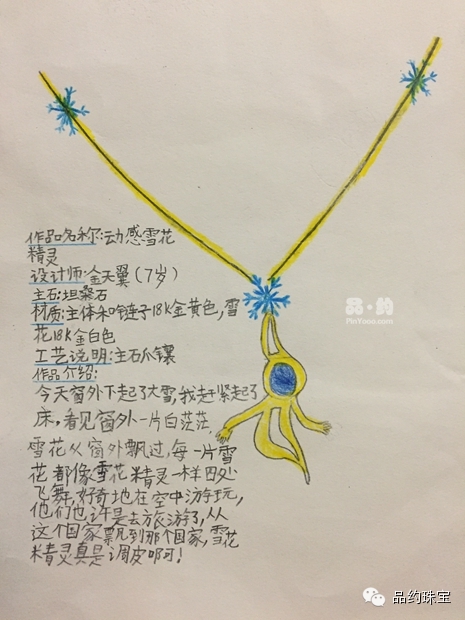 品·约
PinYueo.com
作品名称:动感雪花
精灵
设计师:金天翼(7岁)
主石:坦桑石
材质:主体和链子18k金黄色,雪
花18k金白色
工艺说明:主石爪镶
作品介绍:
今天窗外下起了大雪,我赶紧起了
床,看见窗外一片白茫茫,
雪花从窗外飘过,每一片雪
花都像雪花精灵一样四处
飞舞,好奇地在空中游玩,
他们也许是去旅游了,从
这个国家飘到那个国家,雪花
精灵真是调皮啊!
品约珠宝